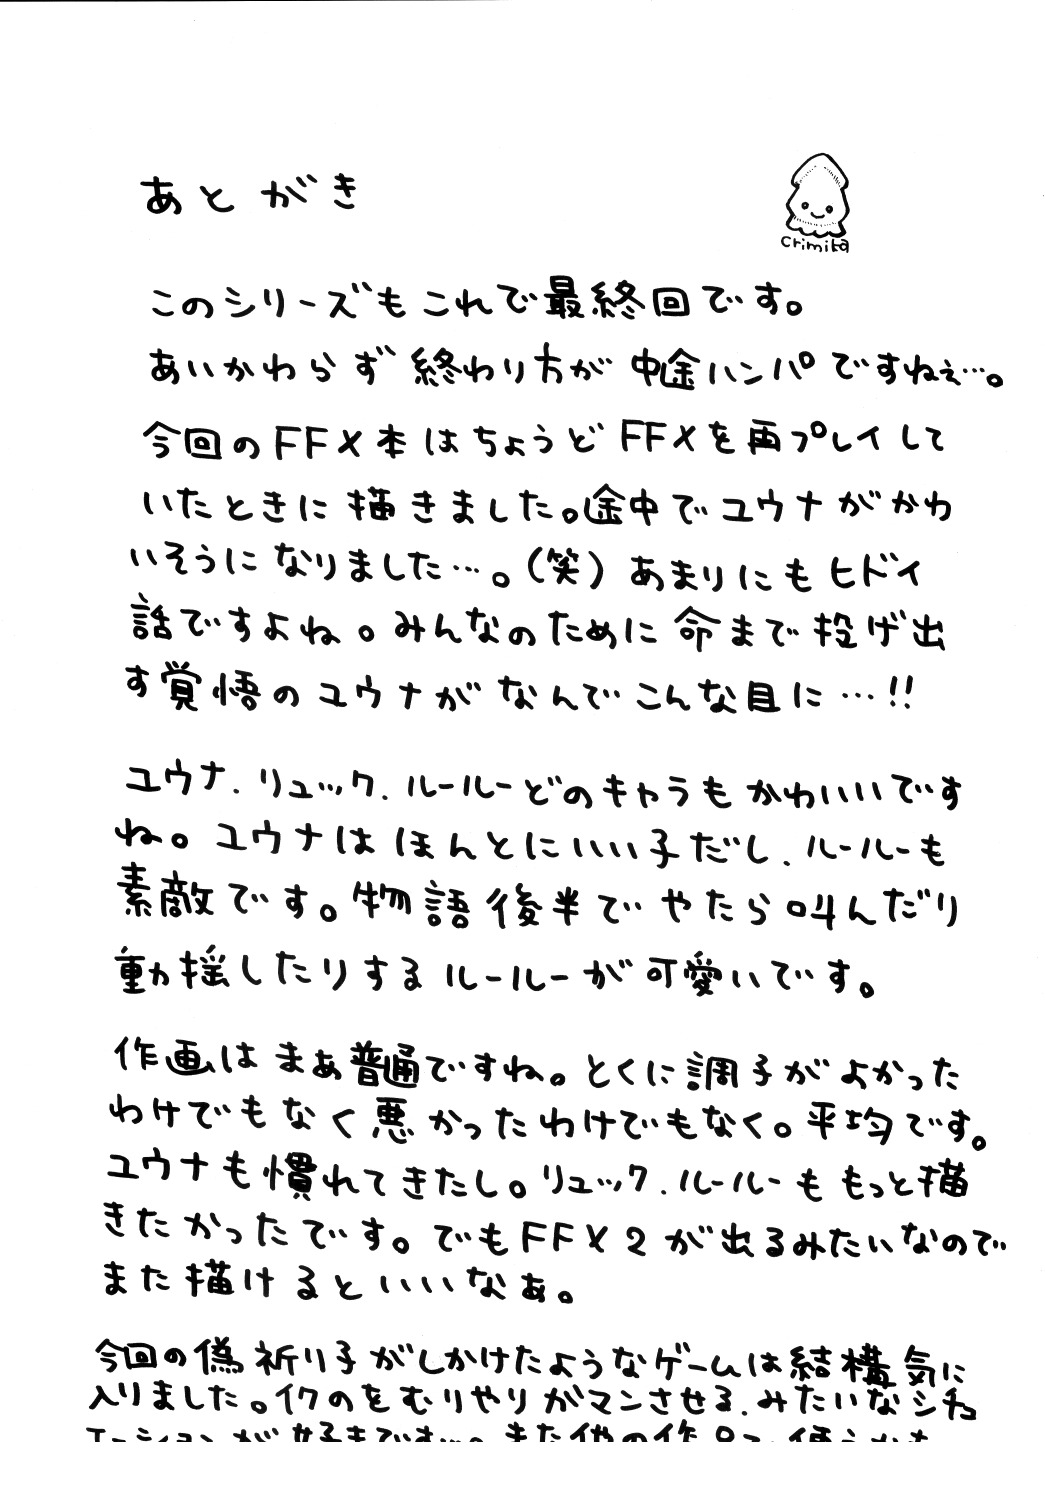 あとがき
Crimita
このシリーズもこれで最終回です。
あいかわらず終わり方が中途ハンパですねぇ…。
今回のFFX本はちょうどFFXを再プレイして
いたときに描きました。途中でユウナがかわ
いそうになりました…。(笑)あまりにもヒドイ
話ですよね。みんなのために命まで投げ出
す覚悟のユウナがなんでこんな目に…!!
ユウナ.リュック.ルールーどのキャラもかわいいです
ね。ユウナはほんとにいい子だし.ルールーも
素敵です。物語後半でやたら叫んだり
動揺したりするルールーが可愛いです。
作画はまぁ普通ですね。とくに調子がよかった
わけでもなく悪かったわけでもなく。平均です。
ユウナも慣れてきたし。リュック.ルールーももっと描
きたかったです。でもFFX2が出るみたいなので
また描けるといいなぁ。
今回の偽祈り子がしかけたようなゲームは結構気に
入りました。イクのをむりやりガマンさせる.みたいなシチュ
エーションが好きです…。また他の作品で使うかも